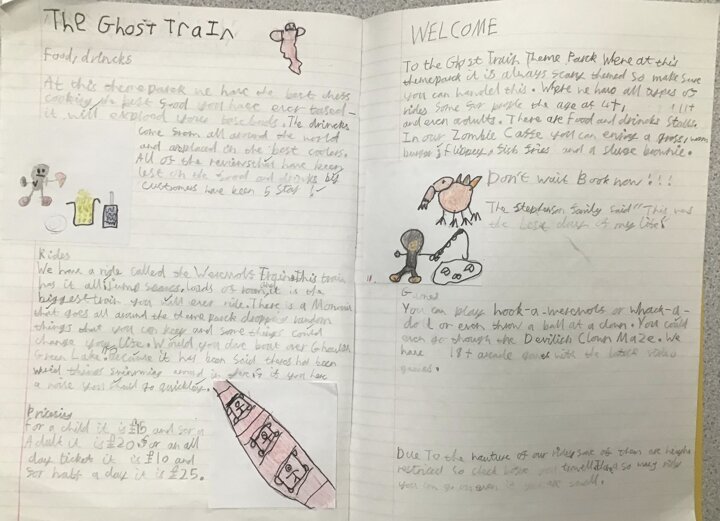 The Ghost Train
Food, drincks
At this theme parck we have the best chess
cooking the best food you have ever tased
it will explod your tastbuds. The drincks
come from all around the world
and are placed on the best coolers.
All of the reviews that have been
left on the food and drinks by
customes have been 5 star!
Rides
We have a ride called the Werewolf Train this train
has it all jump scares, loads of it is the
biggest train you will ever ride. There is a
that goes all around the theme parck dropping random
things that you can keep and some things could
change your life. Would you dare boat over Ghoulish
Green Lake. Because it has been said theres had been
weird things swimming around in there if you hear
a noise you should go quickley.
Pricing
For a child it is £15 and for a
Adult it is £20. For an all
day ticket it is £10 and
for half a day it is £25.
WELCOME
To the Ghost Train Theme Parck Were at this
theme parck it is always scary themed so make sure
you can handel this. Where we have all types of
rides some for people the age of 4+, 11+
and even adults. There are Food and drincks stalls.
In our Zombie Caffe you can enjoy a gross worm
burger, flippey fish fries and a sluge brownie.
Don't wait Book now!!!
The Stephenson family said "This was
the best day of my life"
Games
You can play hook-a-werewolf or whack-a-
doll or even throw a ball at a clown. You could
even go though the Devilich Clown Maze. We
have 18+ arcade games with the latest video
games.
Due to the nauture of our rides some of them are height
restriced so check before you so many rides
you can go on even if you are small.